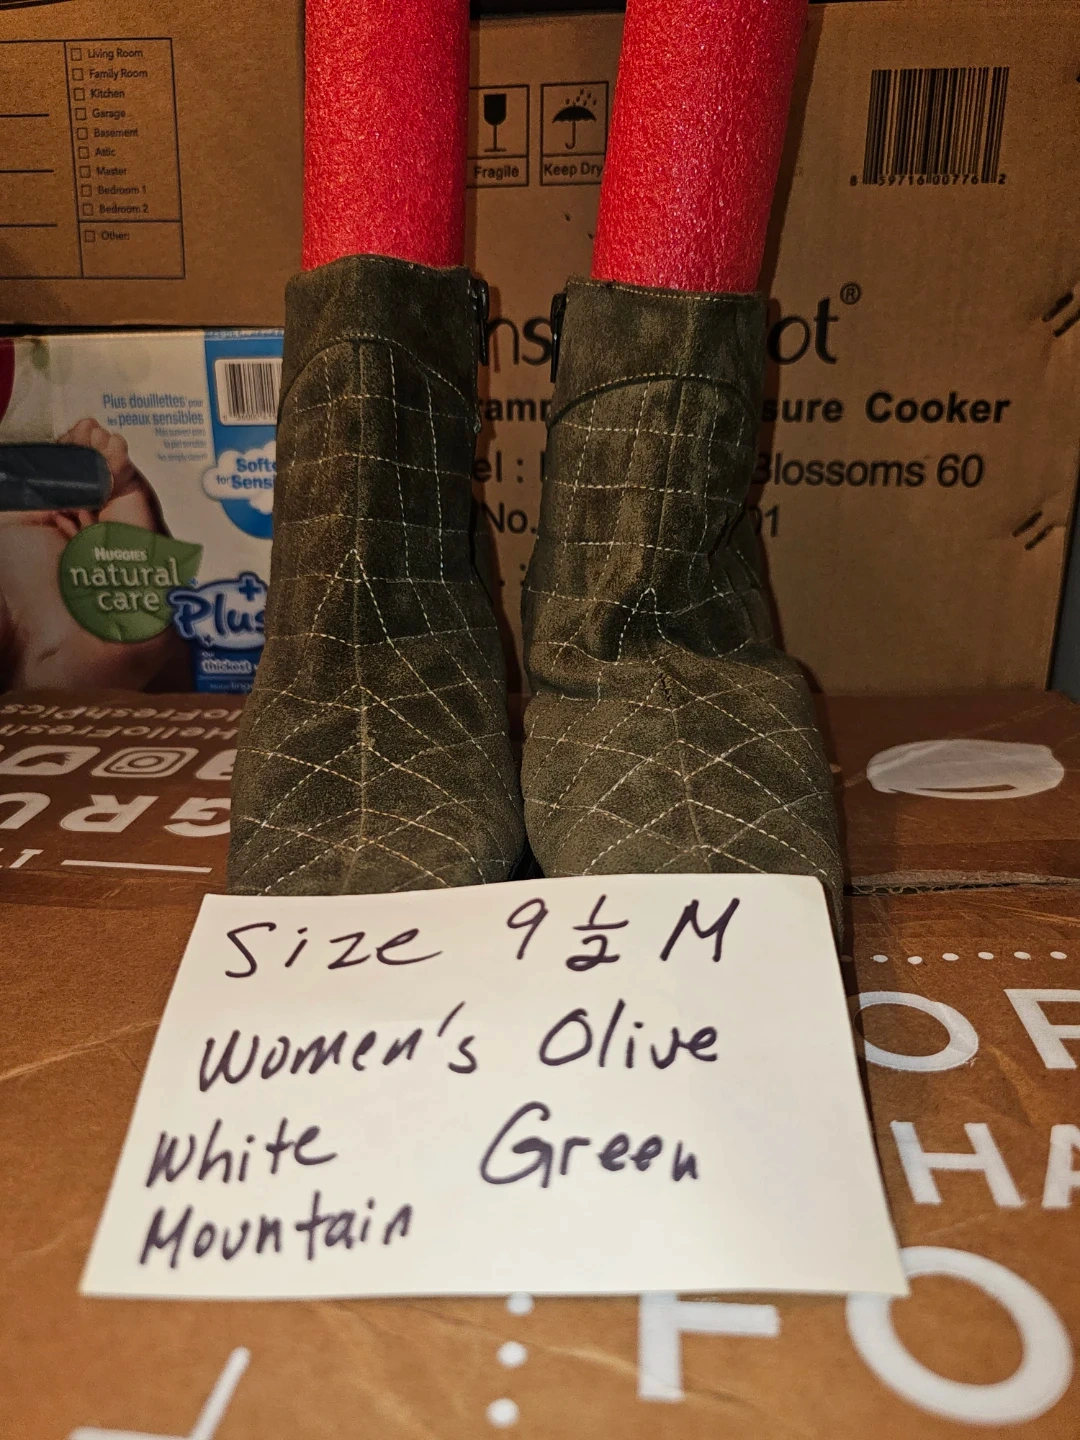 Living Room
Family Room
Kitchen
Garage
Basement
Attic
Master
Bedroom 1
Bedroom 2
Other:
Fragile
Keep Dry
8 59716 00776 2
ot®
sure Cooker
el :
Blossoms 60
No.
01
Plus douillettes pour
les peaux sensibles
Softe
for Sensi
HUGGIES
natural
care
Plus
thickest
HelloFreshPics
GRU
OF
HA
FO
Size 9 ½ M
Women's Olive
White Green
Mountain